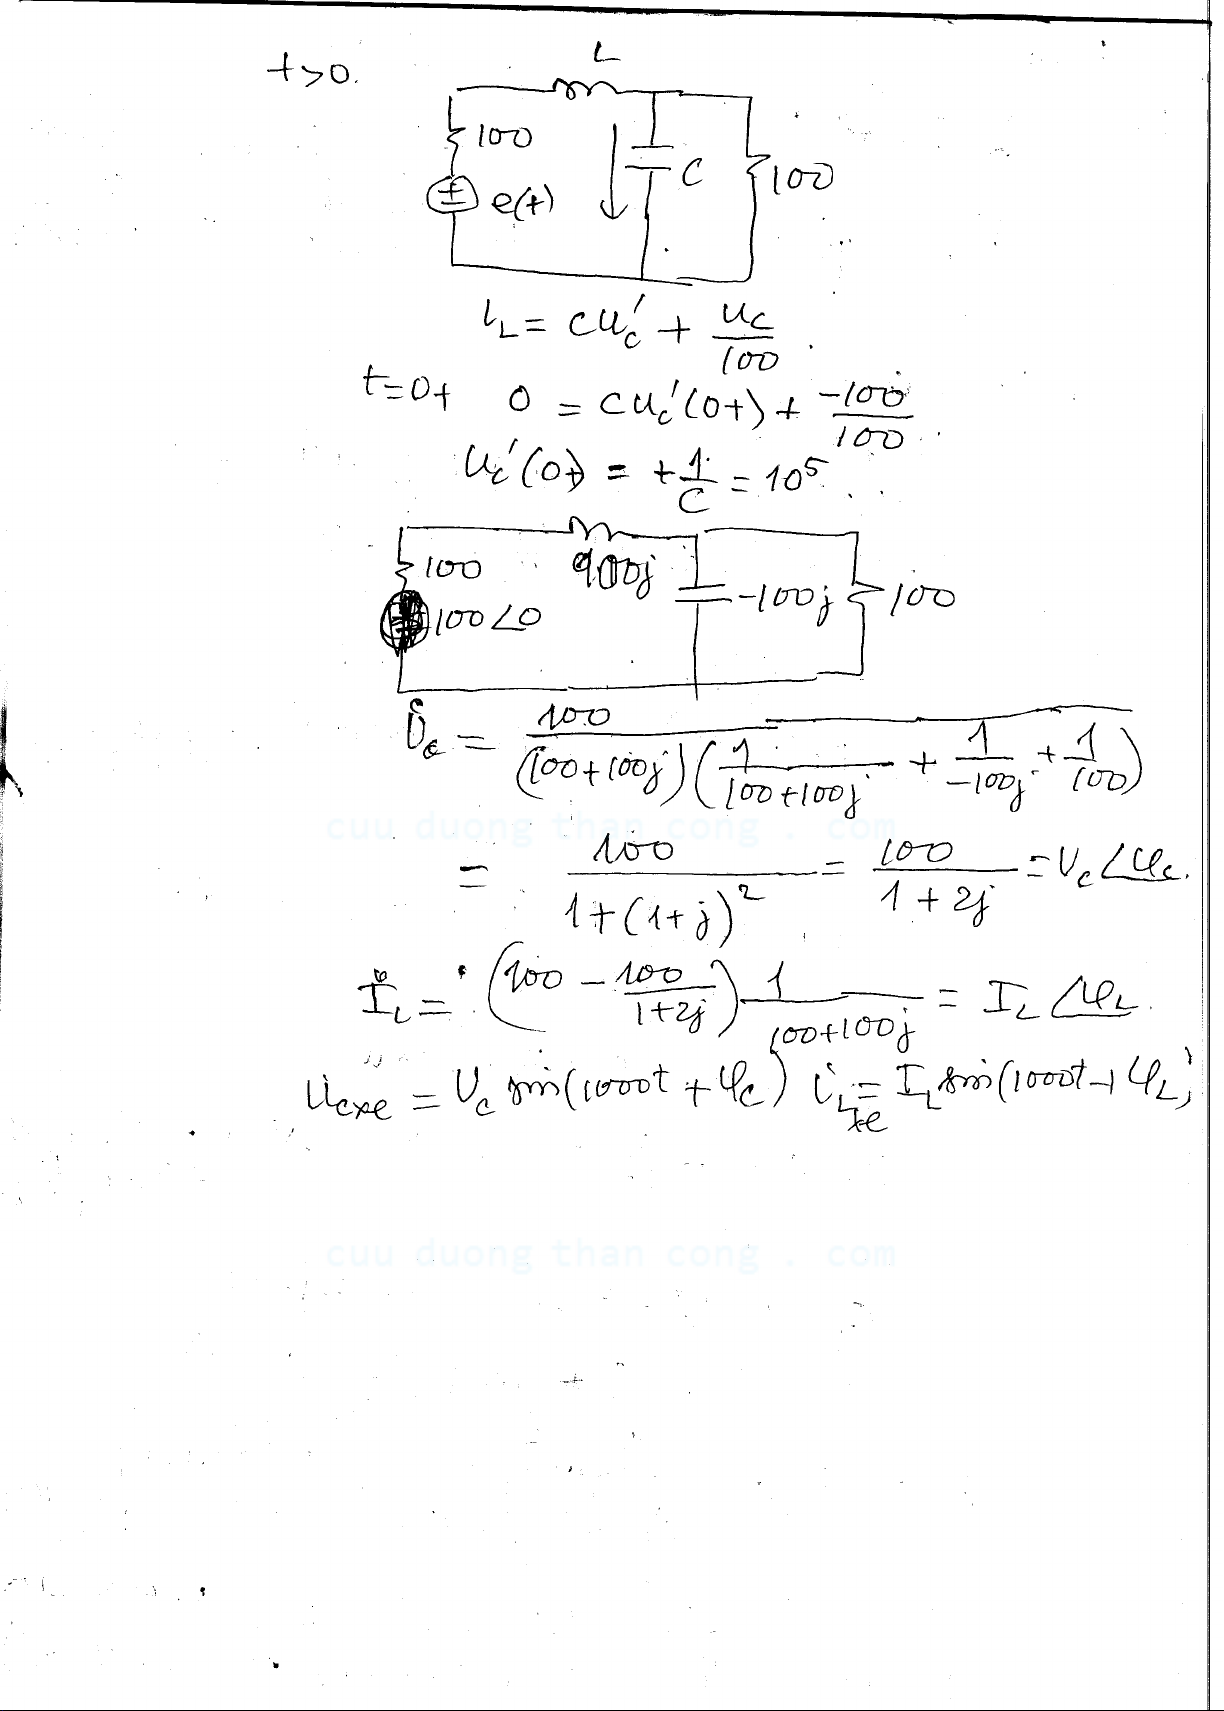 t>0.
L
100
e(t)
C
100
i_L = Cu_c' + u_c/100
t=0+ 0 = Cu_c'(0+) + -100/100
u_c'(0+) = +1/C = 10^5
100
100j
100∠0
-100j
100
U̇_c = 100/((100+100j)(1/(100+100j) + 1/(-100j) + 1/100))
cuu duong than cong . com
= 100/(1+(1+j)^2) = 100/(1+2j) = U_c∠φ_c.
İ_L = (100 - 100/(1+2j)) 1/(100+100j) = I_L∠φ_L.
u_cxe = U_c sin(1000t + φ_c) i_Lxe = I_L sin(1000t + φ_L)
cuu duong than cong . com